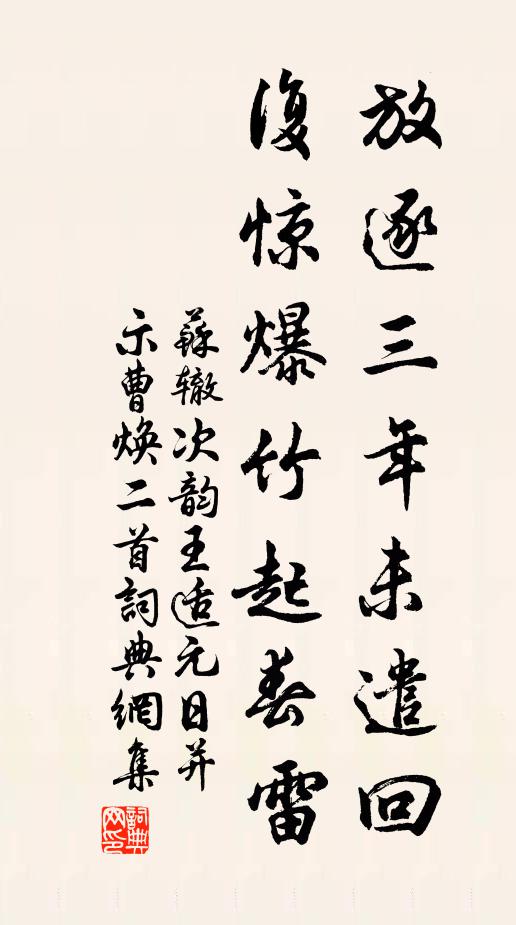 放逐三年未遣回
復惊爆竹起春雷
蘇辙次韵王适元日并
示曹焕二首詞典網集
詞典网印